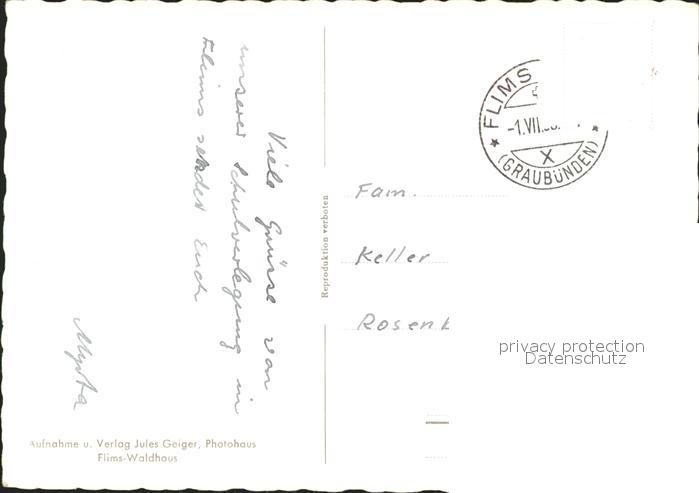 Viele Grüsse von
unserer Schulverlegung in
Flims sendet Euch
Myrta
Aufnahme u. Verlag Jules Geiger, Photohaus
Flims-Waldhaus
Reproduktion verboten
FLIMS
-1.VII.
X
(GRAUBÜNDEN)
Fam.
Keller
privacy protection
Datenschutz